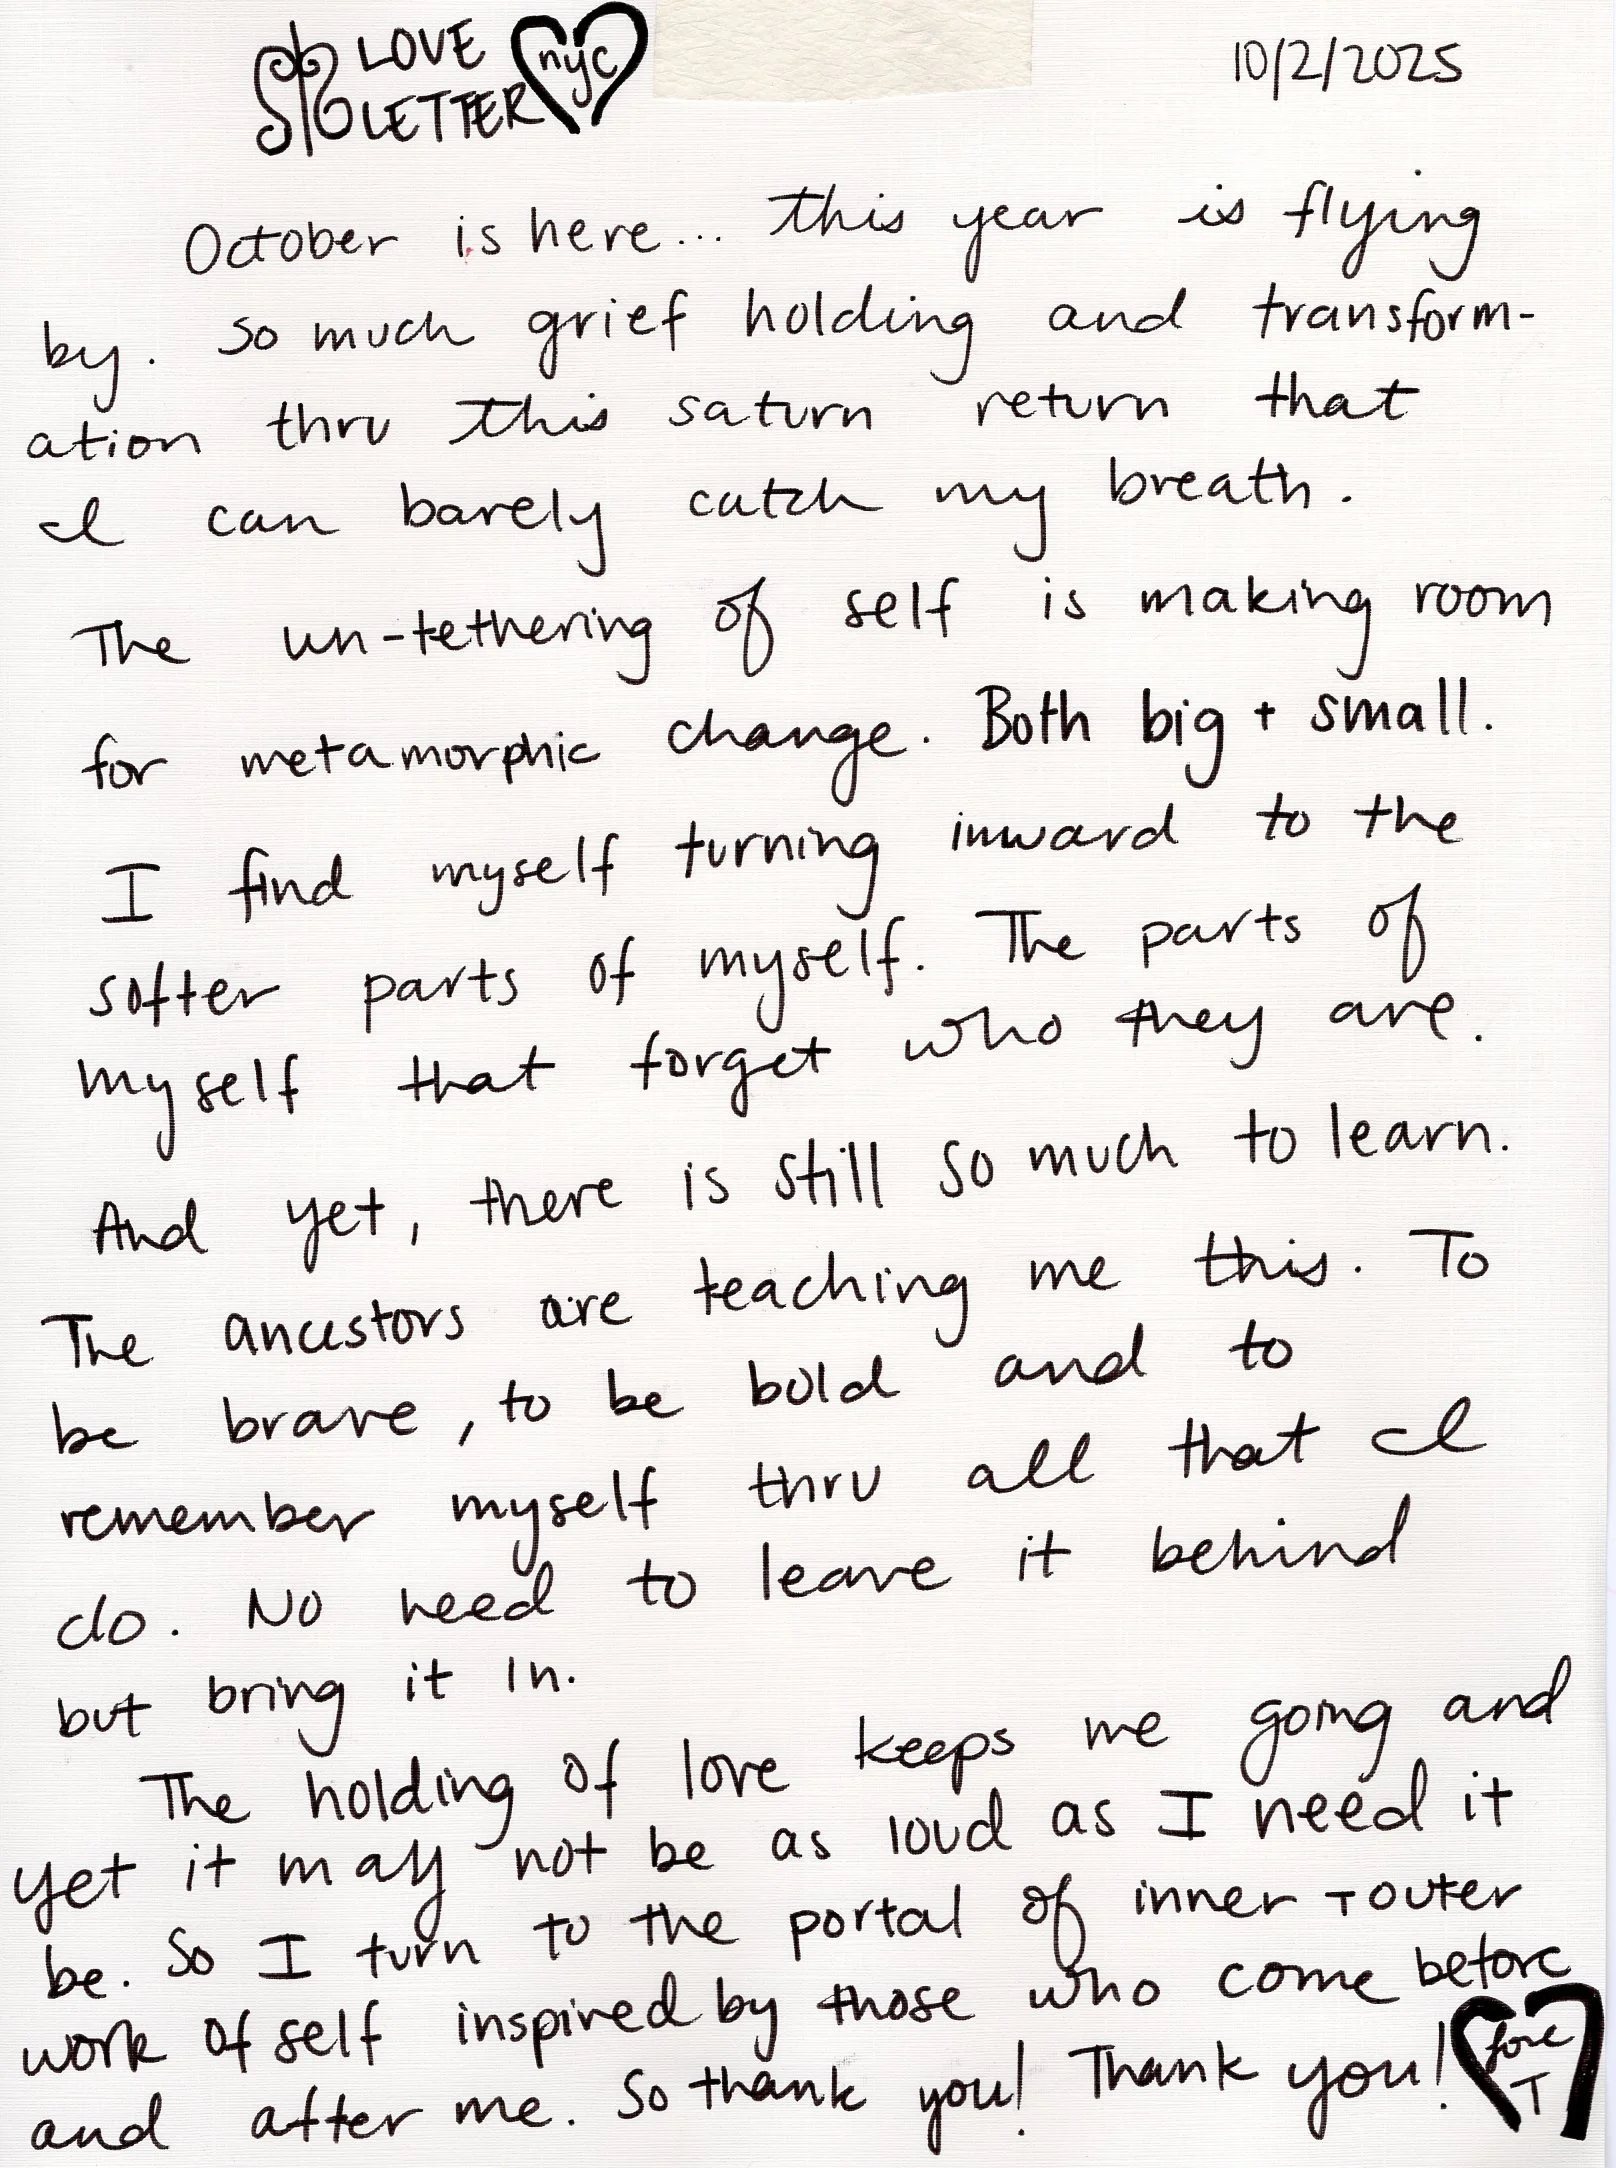 LOVE
LETTER
nyc
10/2/2025
October is here... this year is flying
by. So much grief holding and transform-
ation thru this saturn return that
I can barely catch my breath.
The un-tethering of self is making room
for metamorphic change. Both big + small.
I find myself turning inward to the
softer parts of myself. The parts of
myself that forget who they are.
And yet, there is still so much to learn.
The ancestors are teaching me this. To
be brave, to be bold and to
remember myself thru all that I
do. No need to leave it behind
but bring it in.
The holding of love keeps me going and
yet it may not be as loud as I need it
be. So I turn to the portal of inner + outer
work of self inspired by those who come before
and after me. So thank you! Thank you!
love
T